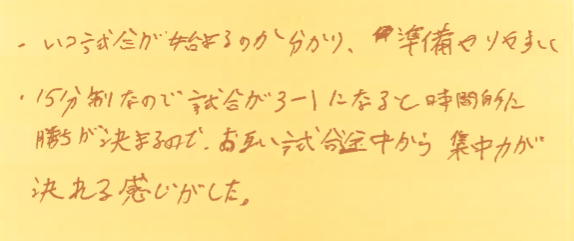 ・いつ試合が始まるのか分かり、準備やりやすく
・15分制なので試合が3-1になると時間的に
勝ちが決まるので、お互い試合途中から集中力が
決れる感じがした。